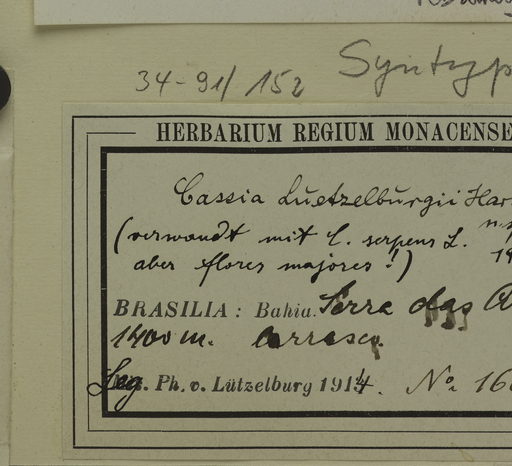 34-91/152
Syntyp
HERBARIUM REGIUM MONACENSE
Cassia Luetzelbŭrgii Har
(verwandt mit C. serpens L.
aber flores majores!)
BRASILIA: Bahia. Serra das
1400 m. Carrasco.
Leg. Ph. v. Lützelburg 1914. No. 16